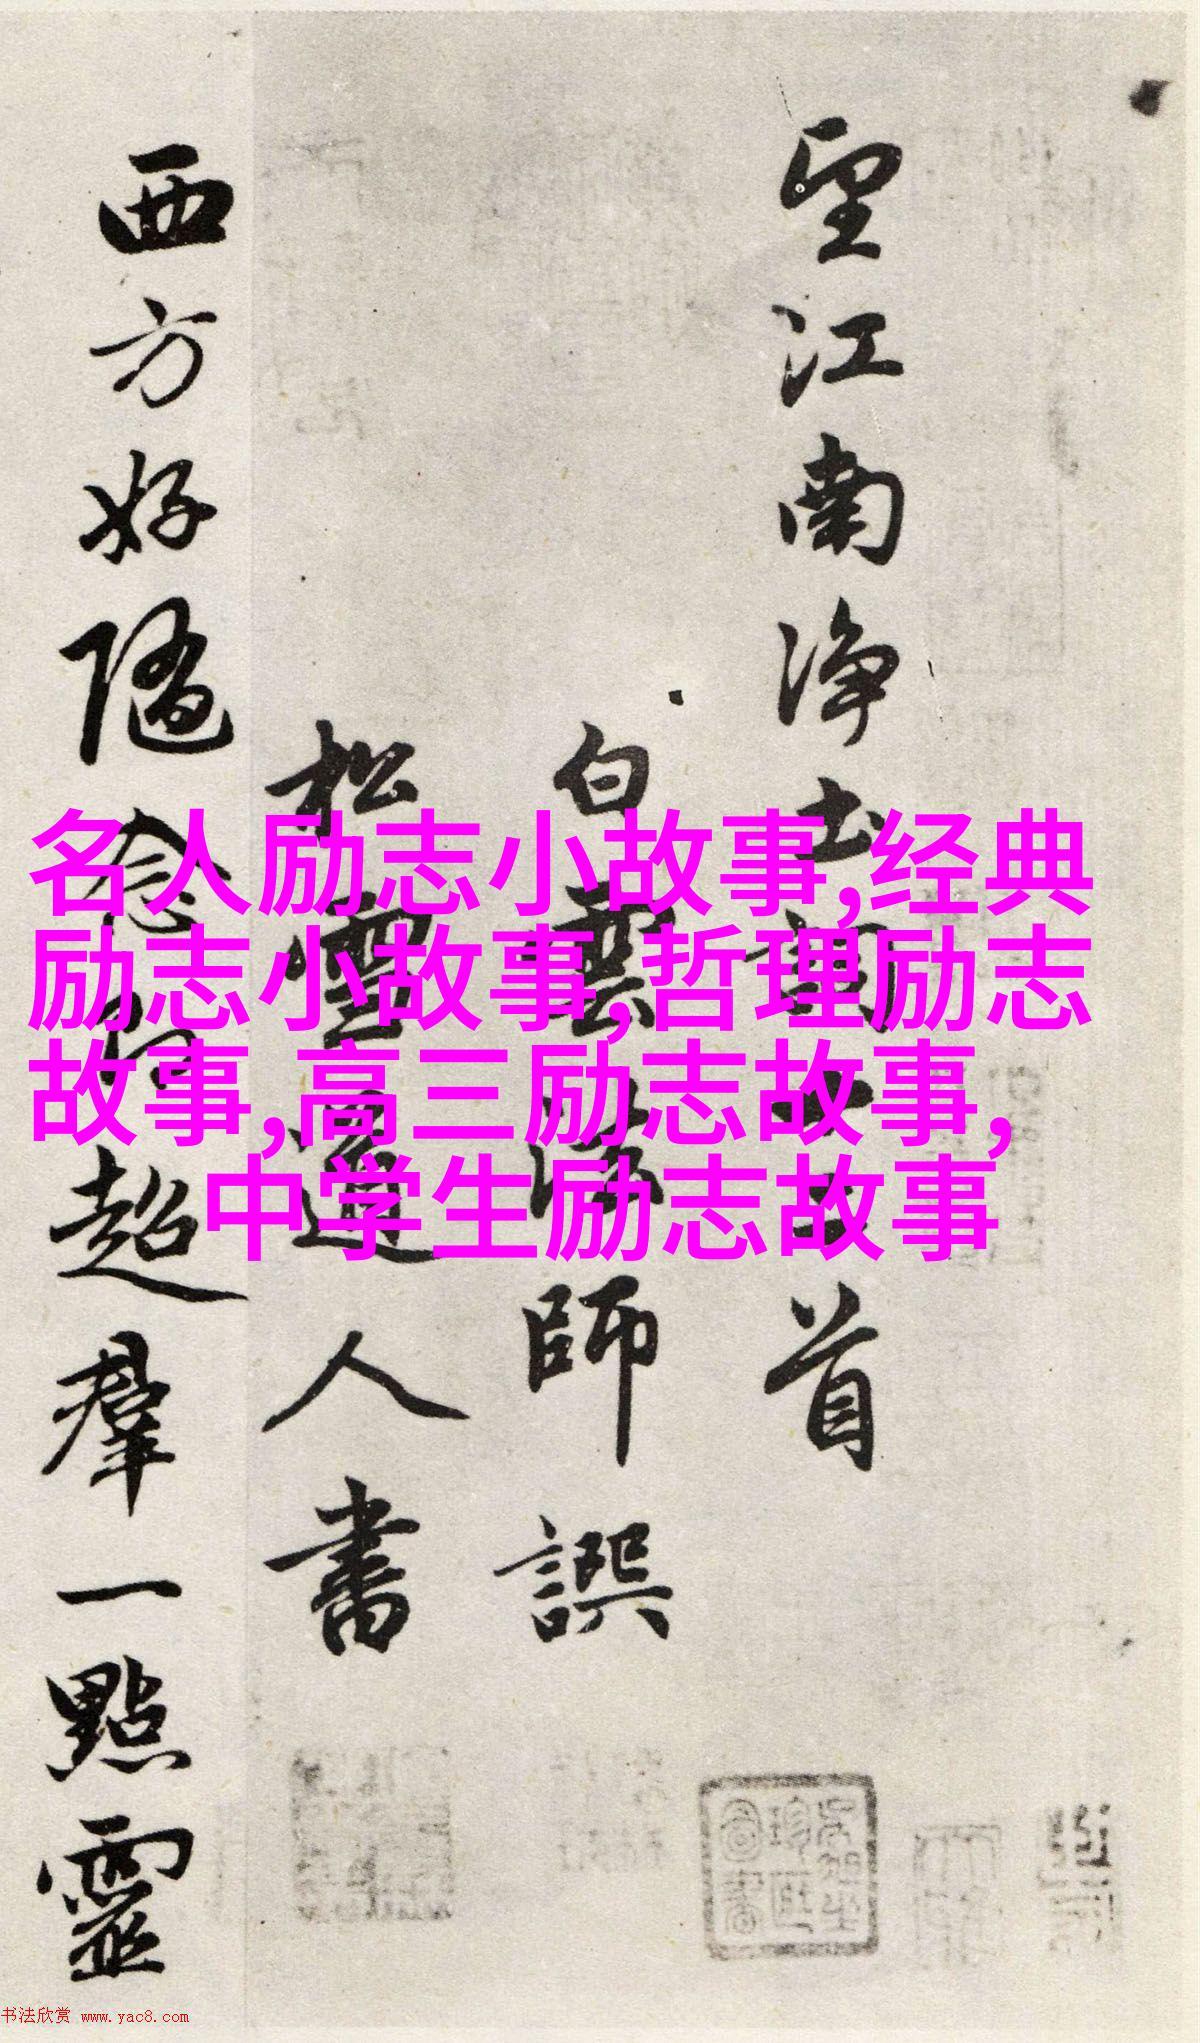 望江南淨土詞首
白雲法師譔
松雪道人書
西方好隨念即超羣一點靈
名人励志小故事,经典
励志小故事,哲理励志
故事,高三励志故事,
中学生励志故事
书法欣赏 www.yac8.com